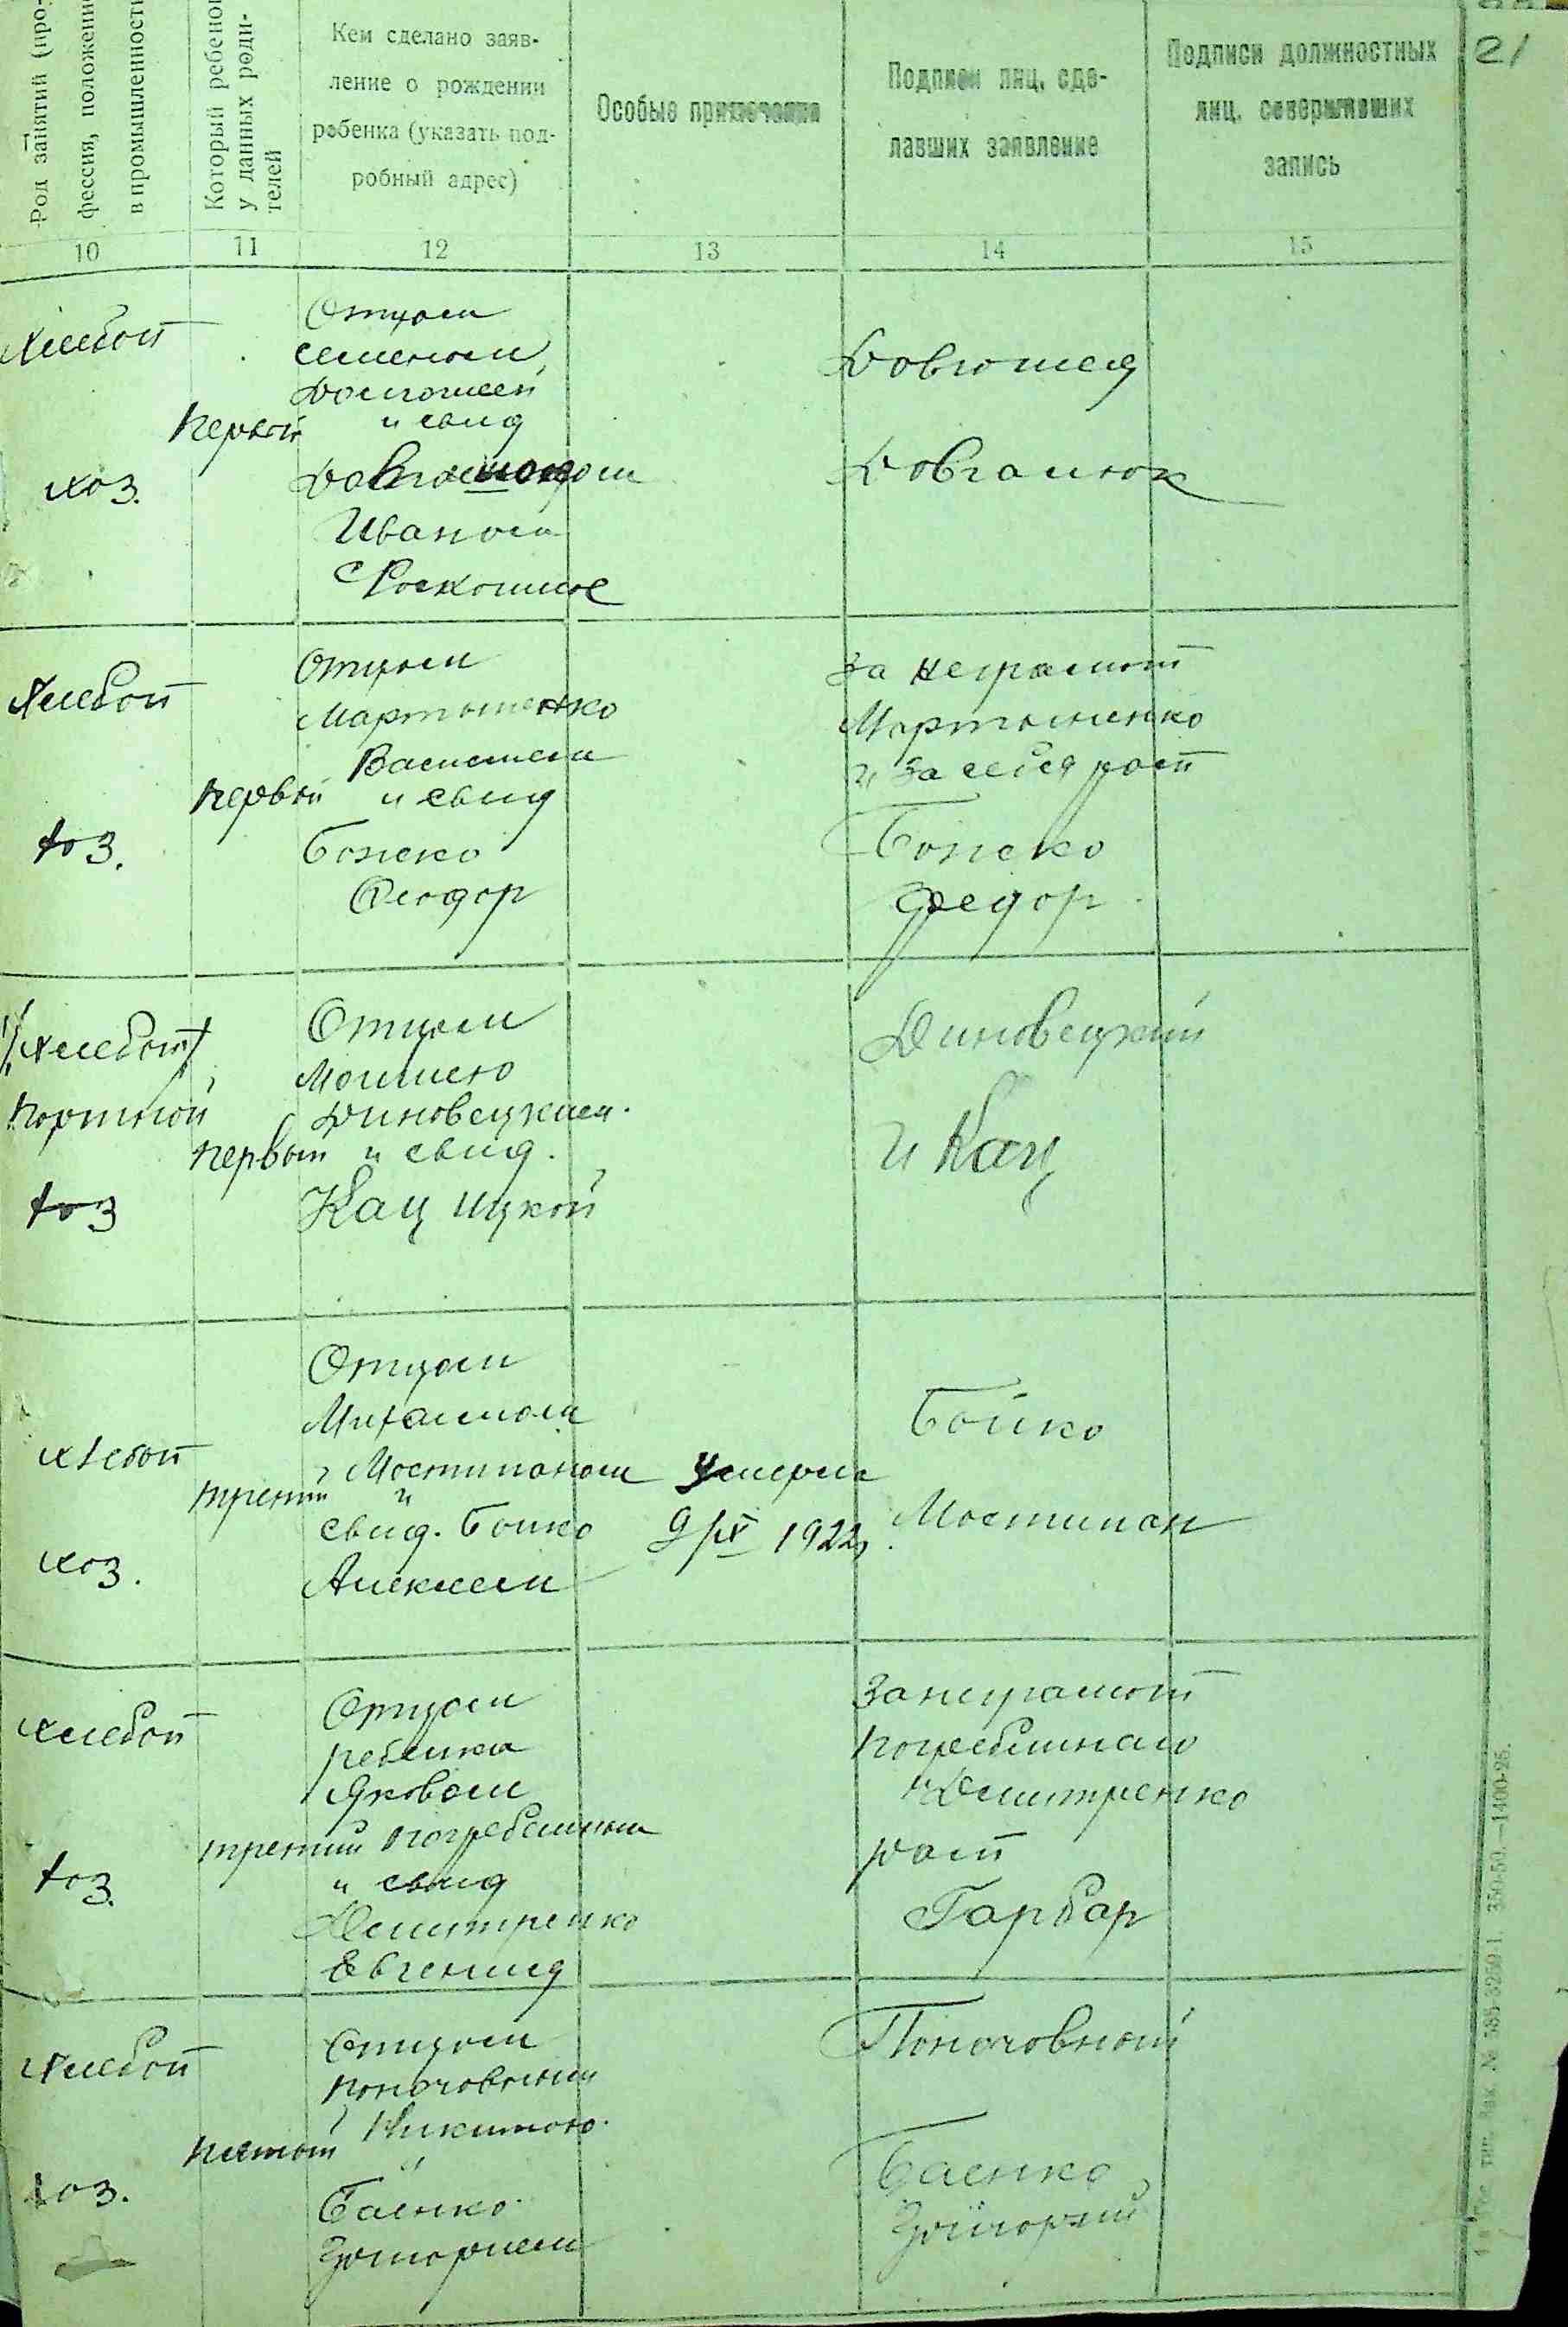 21
Род занятий (про-
фессия, положение
в промышленности
Который ребенок
у данных роди-
телей
Кем сделано заяв-
ление о рождении
ребенка (указать под-
робный адрес)
Особые примечания
Подписи лиц, сде-
лавших заявление
Подписи должностных
лиц, совершивших
запись
10 11 12 13 14 15
Хлебоп
хоз.
Первый
Отцом
Семеном
и свид
Иваном
с Роскошное
Довгалюк
Хлебоп
хоз.
первый
Отцом
Мартыненко
Василем
и свид
Феодор
за неграмот
Мартыненко
и за себя расп
Федор
Хлебоп
портной
хоз
первый
Отцом
Мошкою
Диновецким
и свид.
Кац Ицкой
Диновецкий
и Кац
хлебоп
хоз.
третий
Отцом
Михаилом
Мостипаном
и
свид. Бойко
Алексеем
Умерла
9/IX 1922
Бойко
Мостипан
хлебоп
хоз.
третий
Отцом
ребенка
Яковом
и свид
Дмитренко
Евгений
За неграмот
Дмитренко
расп
Гарбар
Хлебоп
хоз.
пятый
Отцом
Поночовным
Никитою
и
Баенко
Григорием
Поночовный
Баенко
Григорий